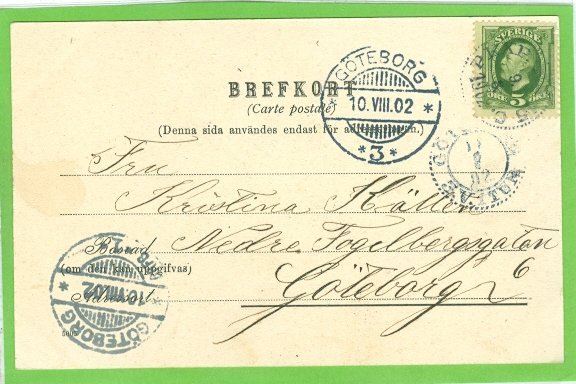 SVERIGE
5 ÖRE
GÖTEBORG
10.VIII.02
*3*
BREFKORT
(Carte postale)
(Denna sida användes endast för adresseringen.)
Fru
Kristina
Bostad Nedre Fogelbergsgatan
(om den kan uppgifvas) 6
Adressort Göteborg
GÖTEBORG
10.VIII.02